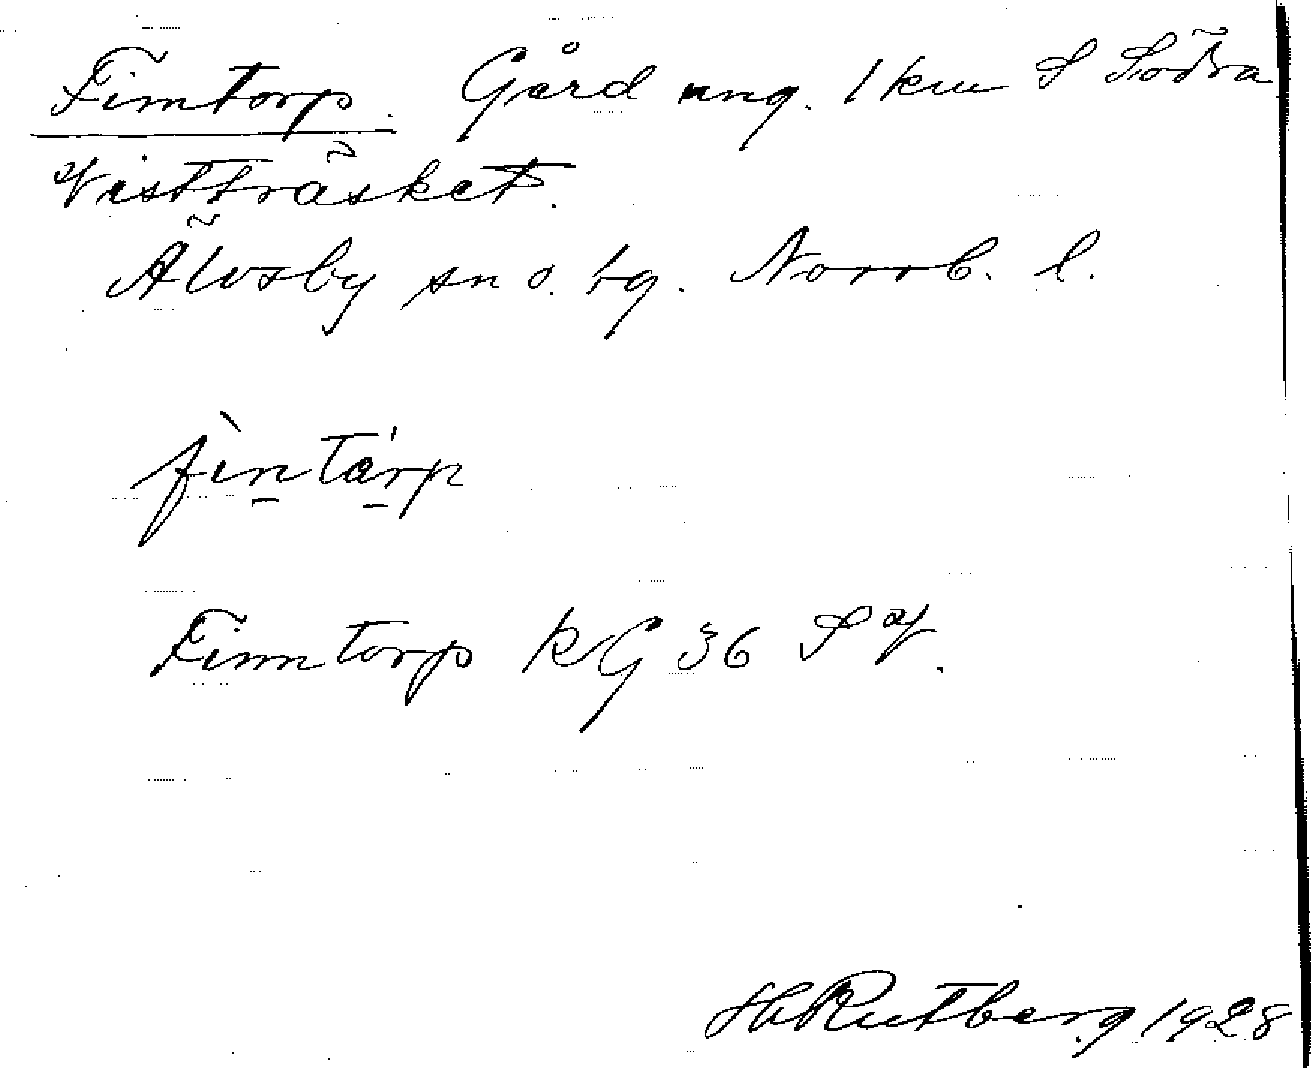 Finntorp. Gård ung. 1 km S Södra
Vistträsket.
Älvsby sn o. tg. Norrb. l.
fìntárp
Finntorp KG 36 SV.
H Rutberg 1928